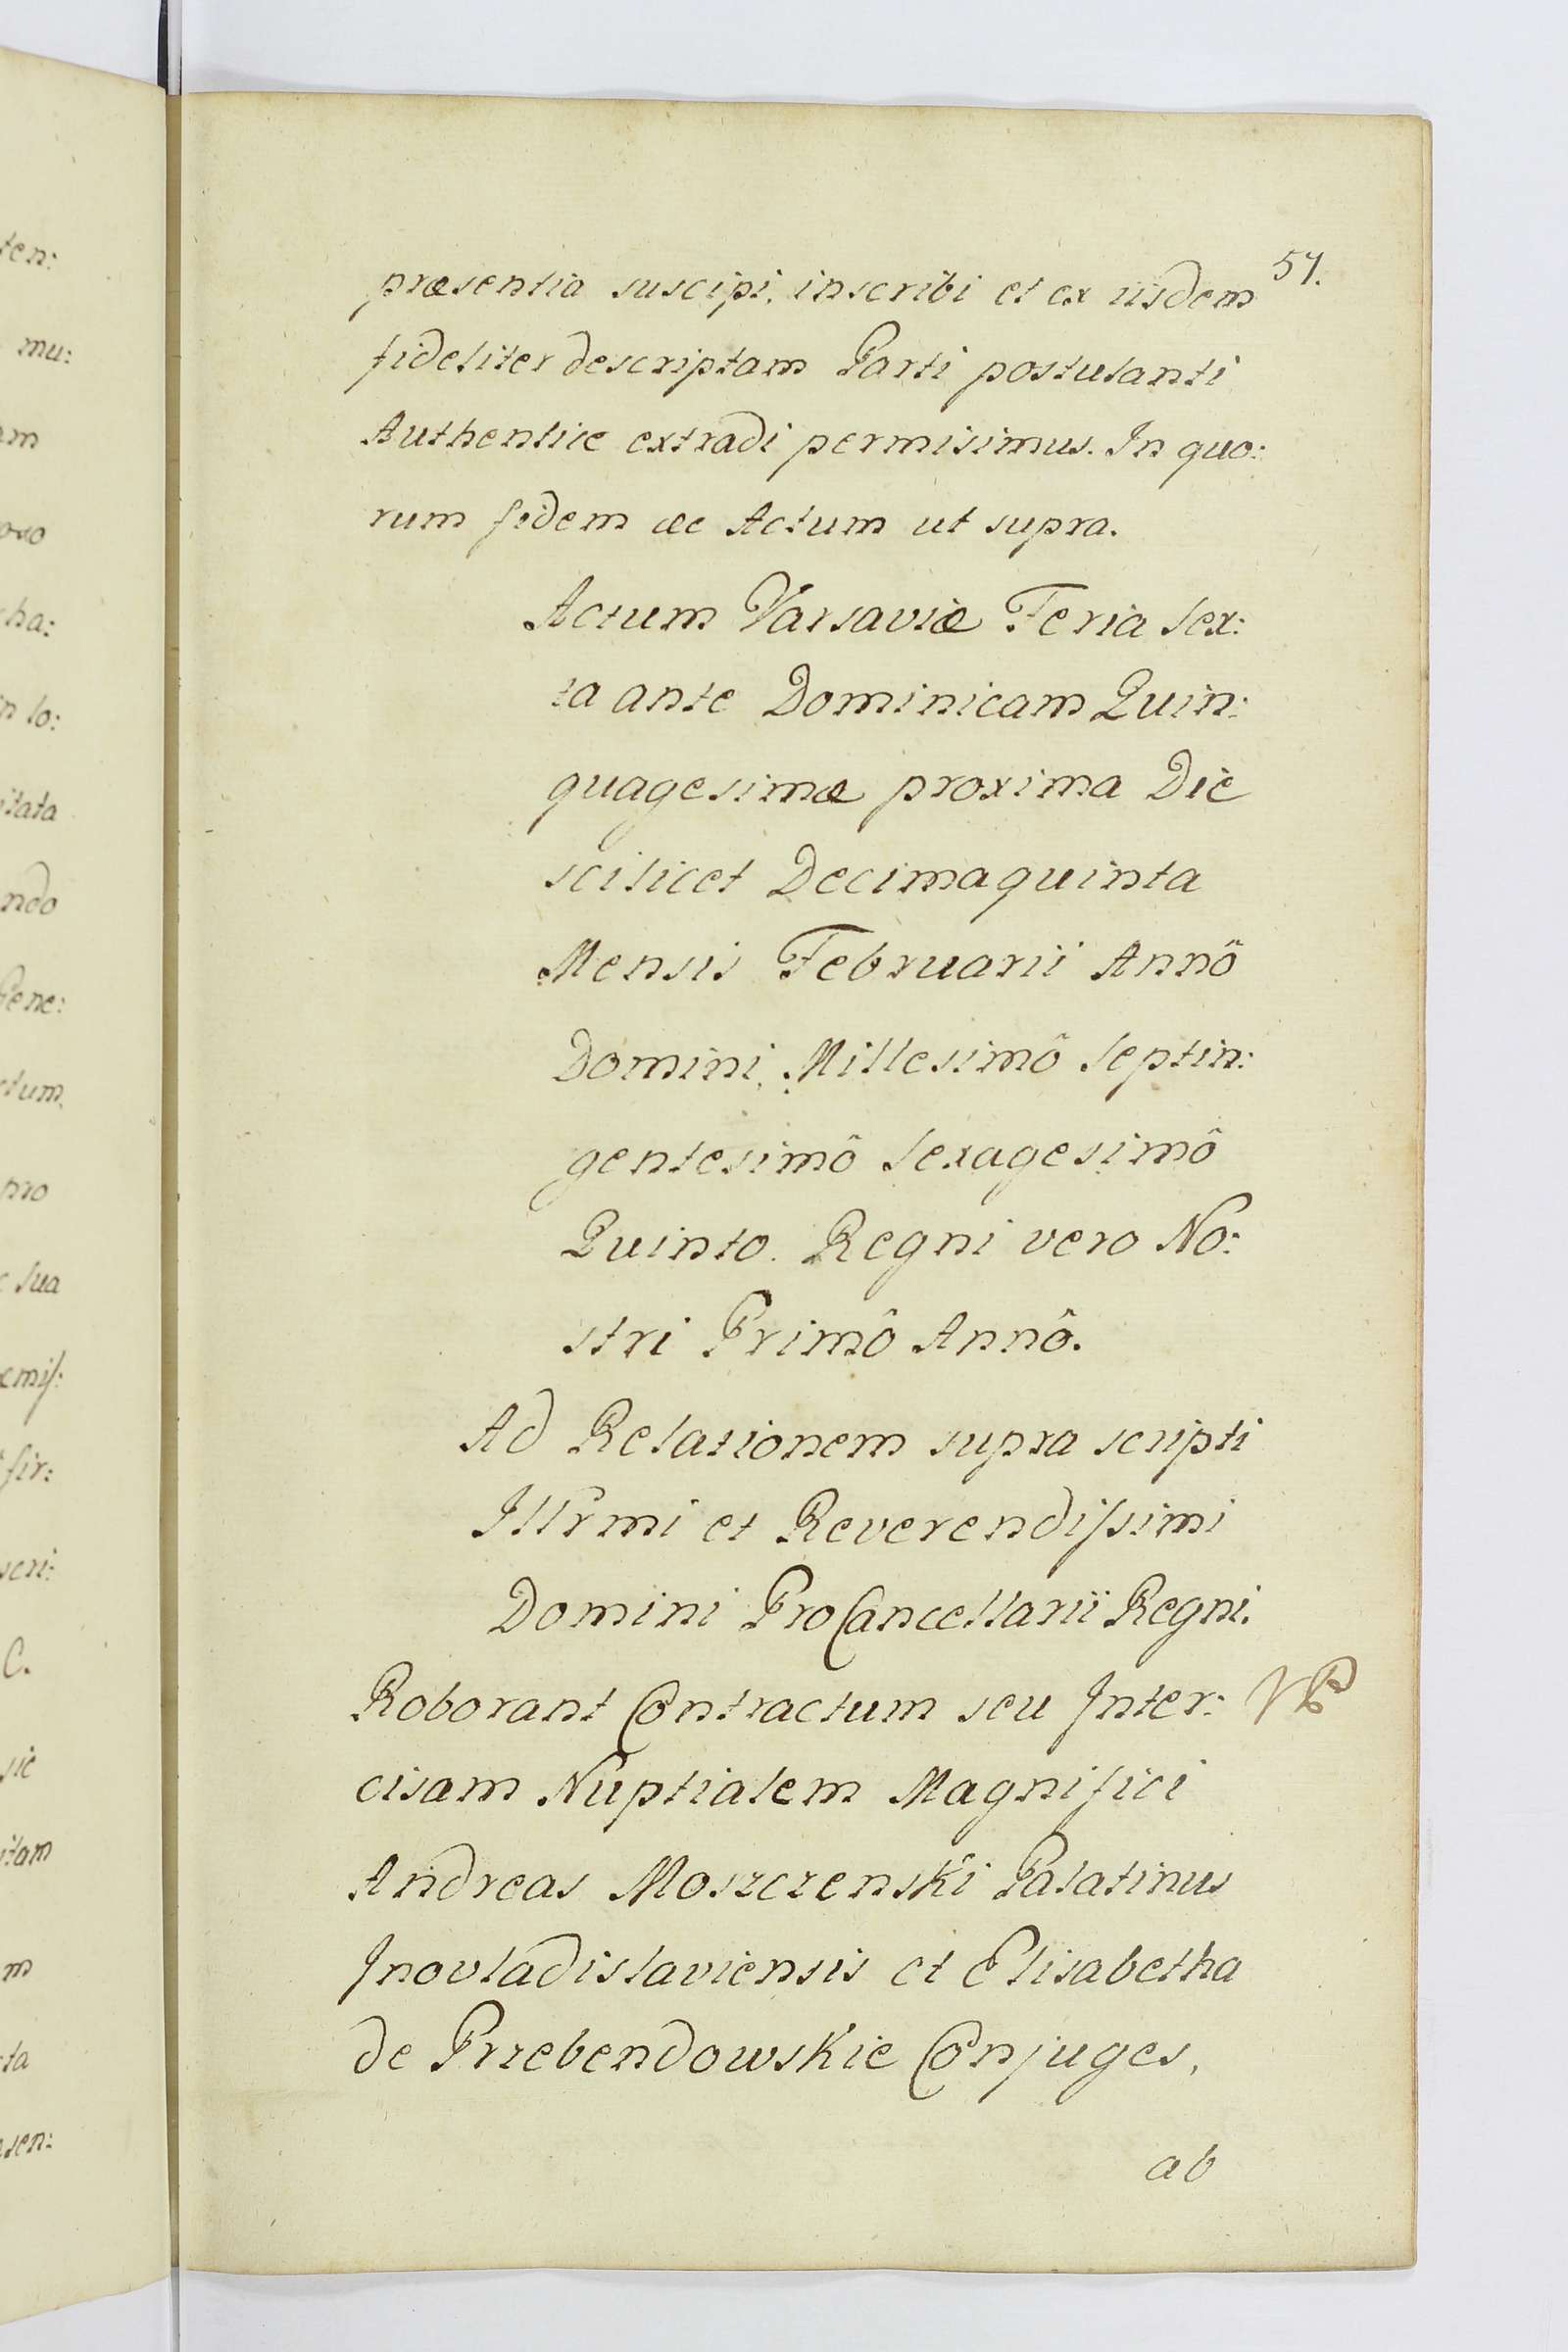 57.
præsentia suscipi, inscribi et ex iisdem
fideliter descriptam Parti postulanti
Authentice extradi permisimus. In quo:
rum fidem &c Actum ut supra.
Actum Varsaviæ Feria Sex:
ta ante Dominicam Quin:
quagesimæ proxima Die
scilicet Decimaquinta
Mensis Februarii Annô
Domini Millesimô Septin:
gentesimô Sexagesimô
Quinto. Regni vero No:
stri Primô Annô.
Ad Relationem supra scripti
Illrmi et Reverendissimi
Domini ProCancellarii Regni.
Roborant Contractum seu Inter:
cisam Nuptialem Magnifici
Andreas Moszczenski Palatinus
Inovladislaviensis et Elisabetha
de Przebendowskie Conjuges,
ab